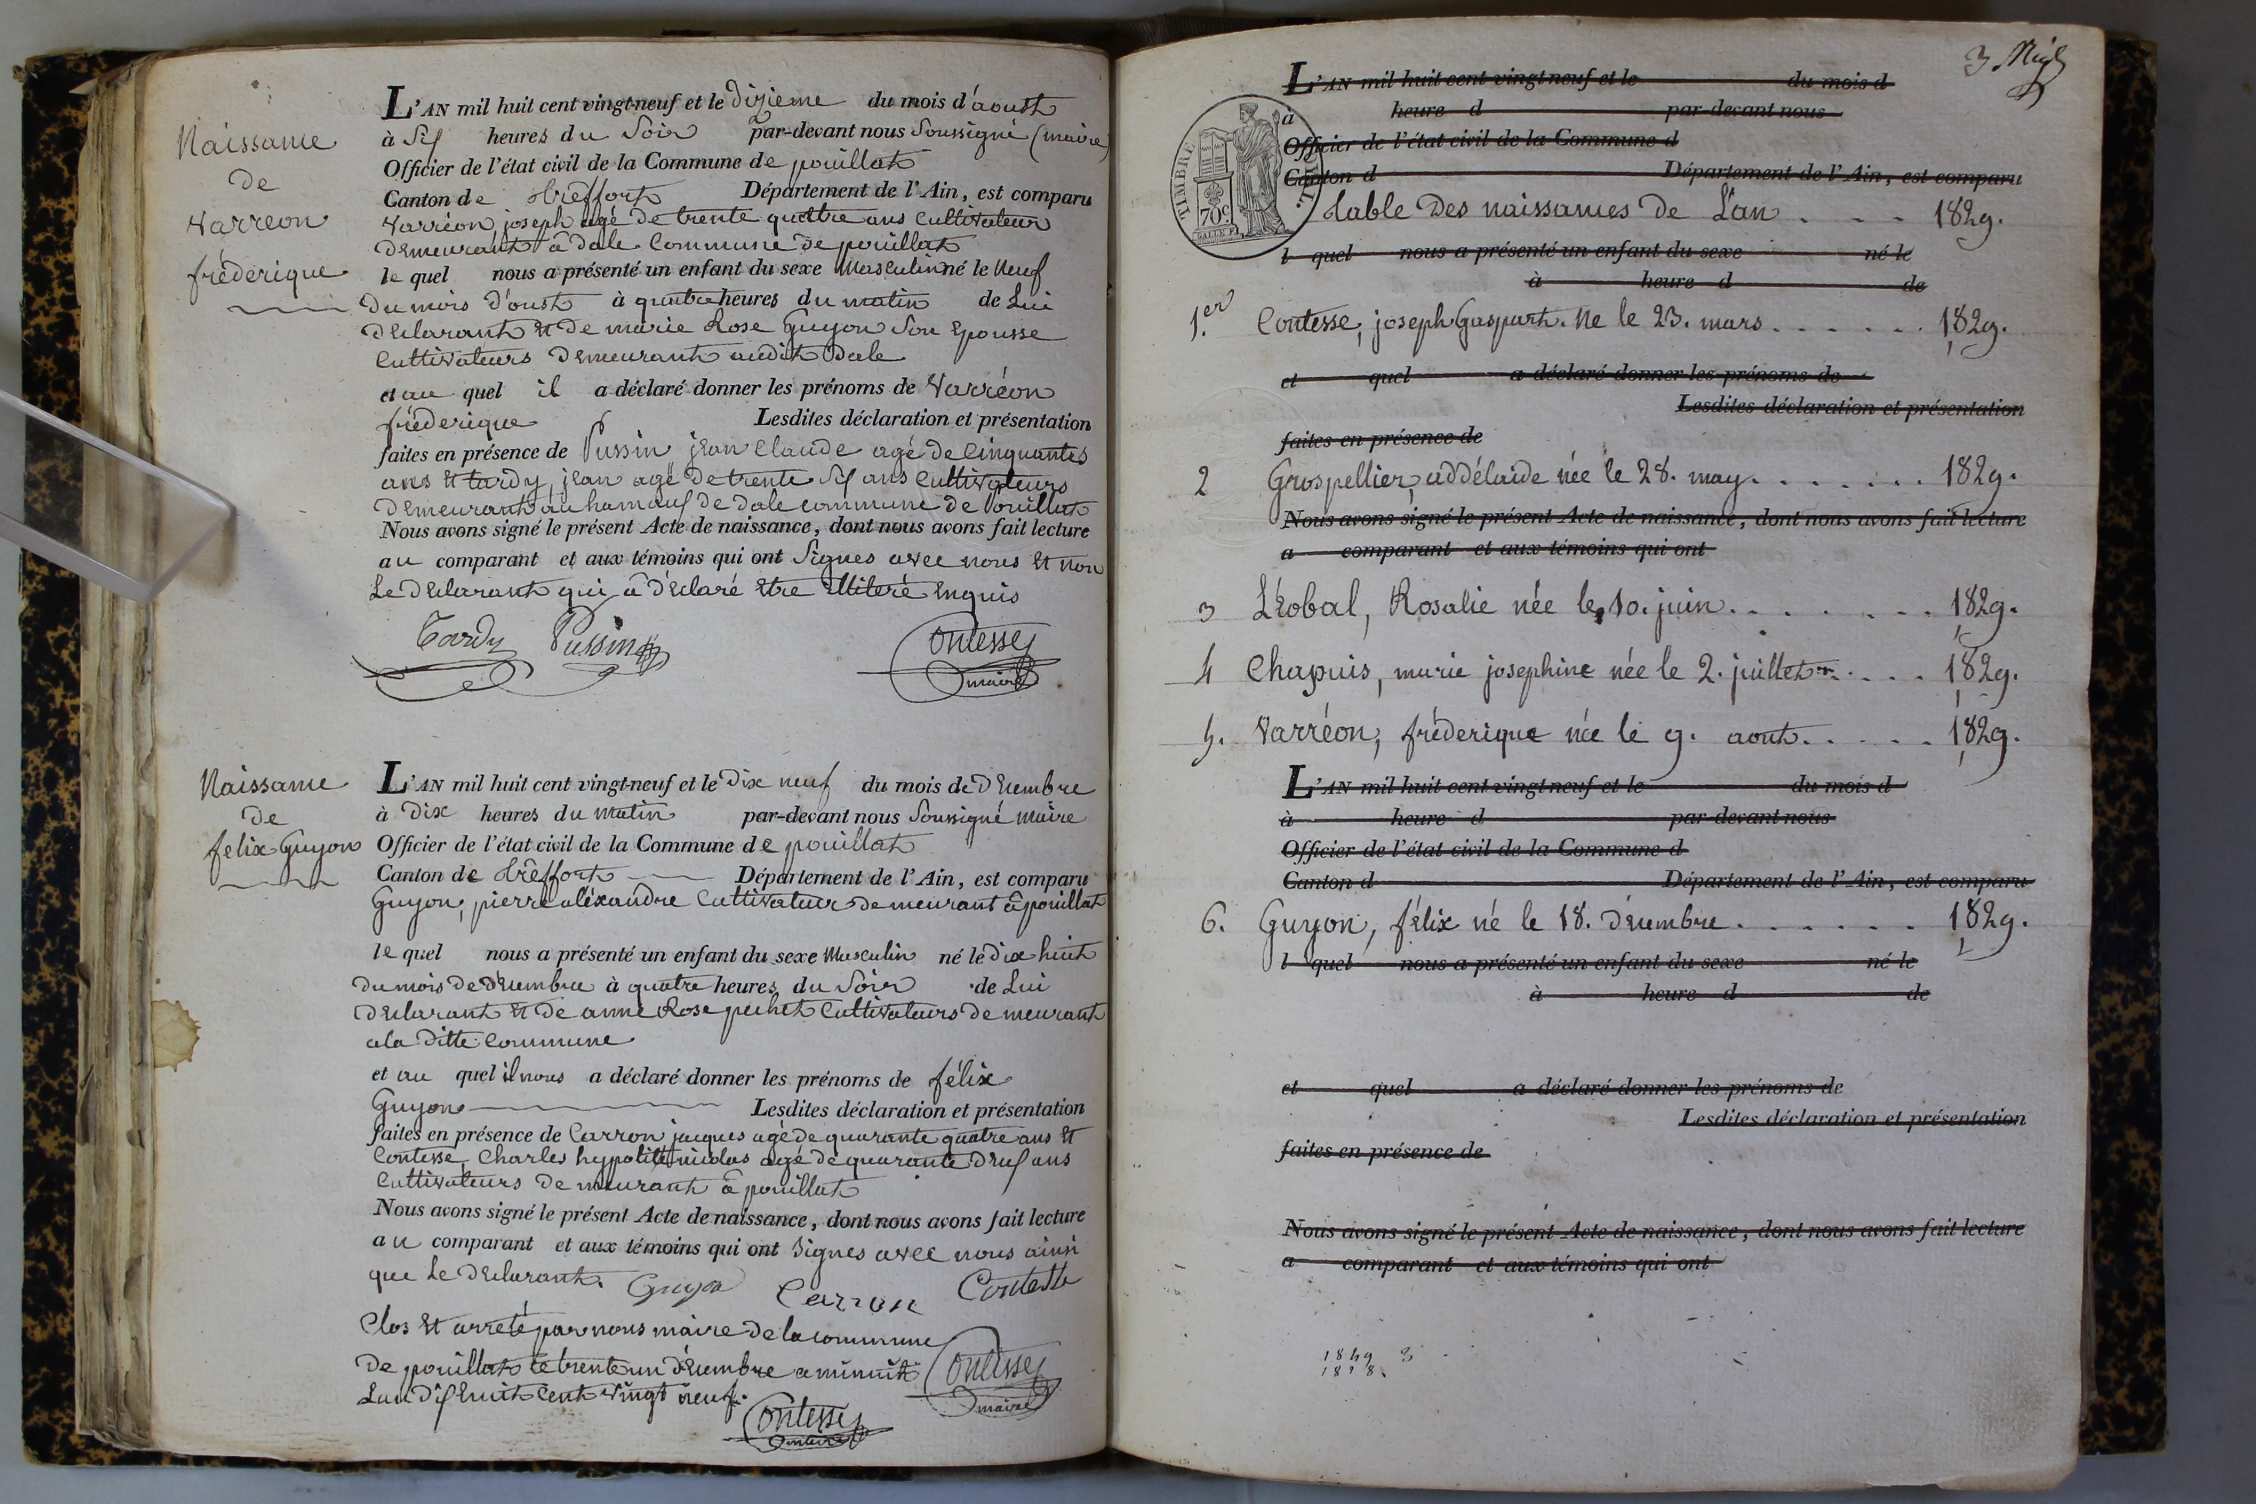 Naissance
de
Varreon
fréderique
L'AN mil huit cent vingt-neuf et le dixieme du mois d'aoust
à six heures du Soir par-devant nous Soussigné (maire)
Officier de l'état civil de la Commune de pouillat
Canton de treffort Département de l'Ain, est comparu
Varréon, joseph agé de trente quattre ans Cultivateur
Demeurant â dale Commune de pouillat
le quel nous a présenté un enfant du sexe Masculin né le Neuf
du mois d'oust à quatre heures du matin de Lui
Declarant et de marie Rose Guyon Son Epousse
Cultivateurs Demeurant audit dale
et au quel il a déclaré donner les prénoms de Varréon
fréderique Lesdites déclaration et présentation
faites en présence de Pussin jean Claude agé de Cinquantes
ans et tardy, jean agé de trente six ans Cultivateurs
Demeurant au hamaux de dale commune de Pouillat
Nous avons signé le présent Acte de naissance, dont nous avons fait lecture
au comparant et aux témoins qui ont Signes avec nous et non
Le Declarant qui â déclaré Etre illiteré Enquis
Tardy Pussin Contesse
maire
Naissance
de
felix Guyon
L'AN mil huit cent vingt-neuf et le Dix neuf du mois de Decembre
à Dix heures du matin par-devant nous Soussigné maire
Officier de l'état civil de la Commune de pouillat
Canton de trêffort Département de l'Ain, est comparu
Guyon, pierre aléxandre Cultivateur demeurant â pouillat
le quel nous a présenté un enfant du sexe Masculin né le Dix huit
du mois de Décembre à quatre heures du Soir de Lui
Declarant et de anne Rose pechet Cultivateurs demeurant
ala Ditte Commune
et au quel il nous a déclaré donner les prénoms de félix
Guyon Lesdites déclaration et présentation
faites en présence de Carron, jacques agé de quarante quatre ans et
Contesse, Charles hypolitte nicolas agé de quarante deux ans
Cultivateurs demeurant â pouillat
Nous avons signé le présent Acte de naissance, dont nous avons fait lecture
au comparant et aux témoins qui ont Signes avec nous ainsi
que Le Declarant. Guyon Carron Contesse
Clos et arreté par nous maire de la commune
De pouillat le trente un décembre a minuit Contesse
Lan dix huit Cent vingt neuf. maire
Contesse
maire
3
L'AN mil huit cent vingt-neuf et le du mois d
à heure d par-devant nous
Officier de l'état civil de la Commune d
Canton d Département de l'Ain, est comparu
TIMBRE
70c.
Table Des naissances de L'an . . . . 1829.
l quel nous a présenté un enfant du sexe né le
à heure d de
1.er Contesse, joseph Gaspart. Ne le 23. mars . . . . . . . 1829.
et quel a déclaré donner les prénoms de
Lesdites déclaration et présentation
faites en présence de
2 Grospellier, addélaide née le 28. may . . . . . . . 1829.
Nous avons signé le présent Acte de naissance, dont nous avons fait lecture
a comparant et aux témoins qui ont
3 Léobal, Rosalie née le 10. juin . . . . . . . 1829.
4 Chapuis, marie josephine née le 2. juillet . . . . . 1829.
5. Varréon, fréderique née le 9. aout . . . . . 1829.
L'AN mil huit cent vingt-neuf et le du mois d
à heure d par-devant nous
Officier de l'état civil de la Commune d
Canton d Département de l'Ain, est comparu
6. Guyon, félix né le 18. Décembre . . . . . . 1829.
l quel nous a présenté un enfant du sexe né le
à heure d de
et quel a déclaré donner les prénoms de
Lesdites déclaration et présentation
faites en présence de
Nous avons signé le présent Acte de naissance, dont nous avons fait lecture
a comparant et aux témoins qui ont